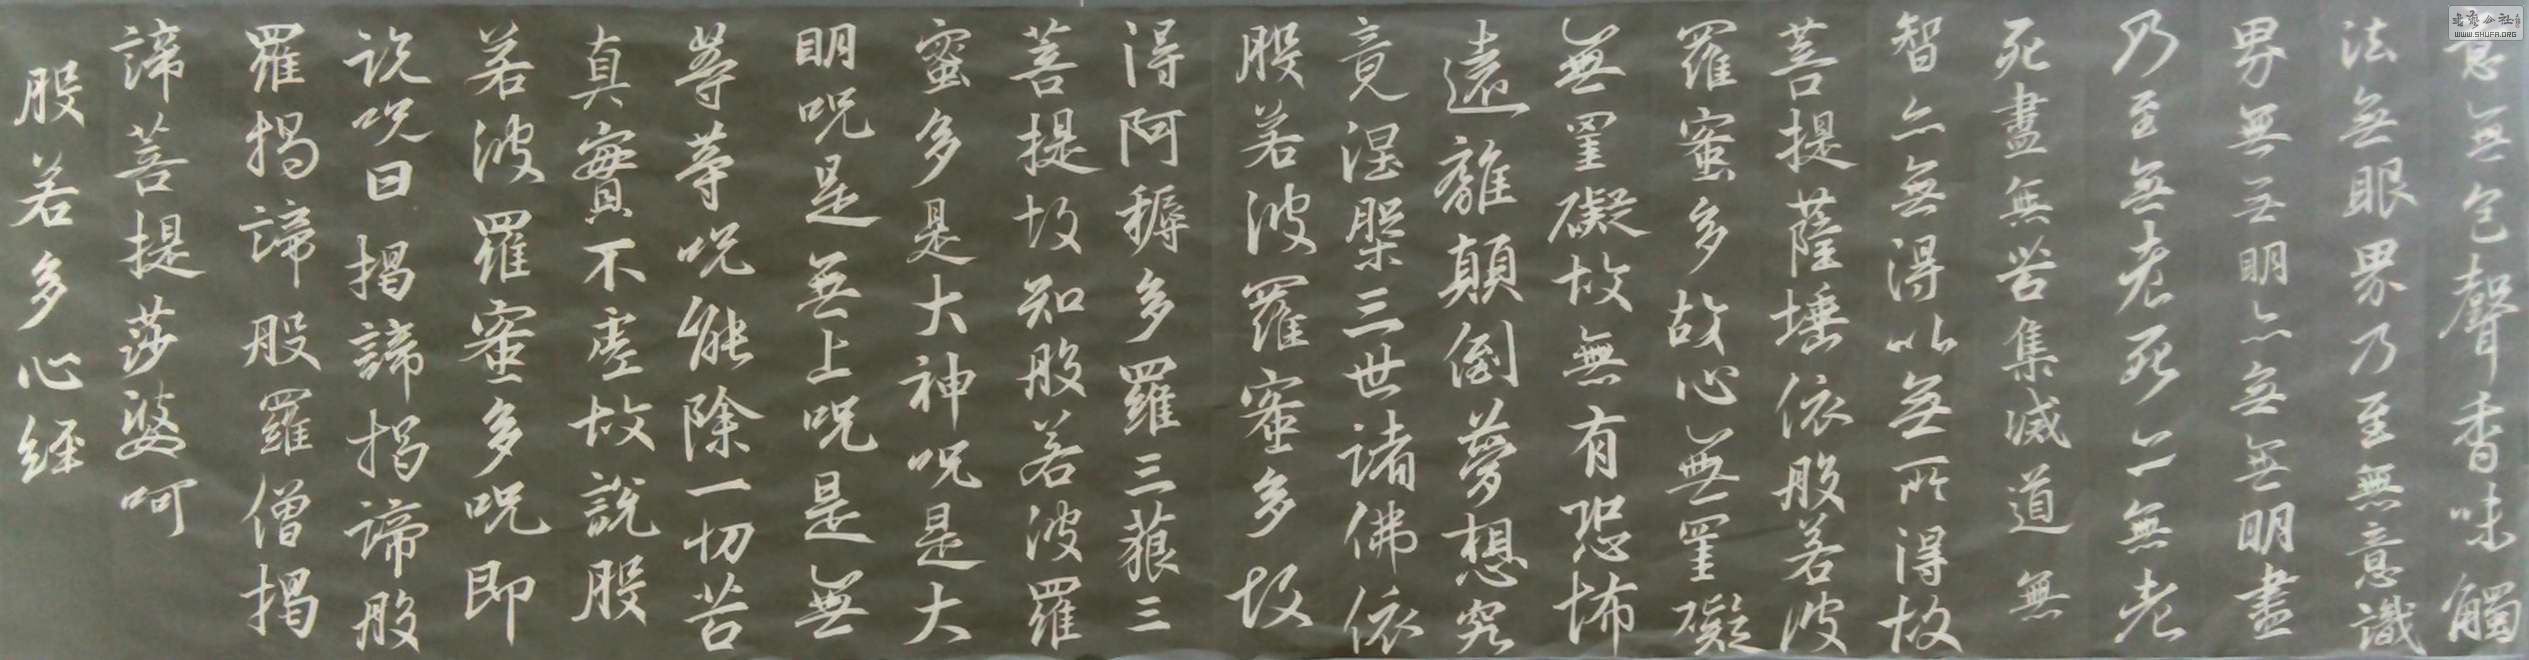 意無色聲香味觸
法無眼界乃至無意識
界無無明亦無無明盡
乃至無老死亦無老
死盡無苦集滅道無
智亦無得以無所得故
菩提薩埵依般若波
羅蜜多故心無罣礙
無罣礙故無有恐怖
遠離顛倒夢想究
竟涅槃三世諸佛依
般若波羅蜜多故
得阿耨多羅三藐三
菩提故知般若波羅
蜜多是大神咒是大
明咒是無上咒是無
等等咒能除一切苦
真實不虛故說般
若波羅蜜多咒即
說咒曰揭諦揭諦般
羅揭諦般羅僧揭
諦菩提莎婆呵
般若多心經
書藝公社
WWW.SHUFA.ORG